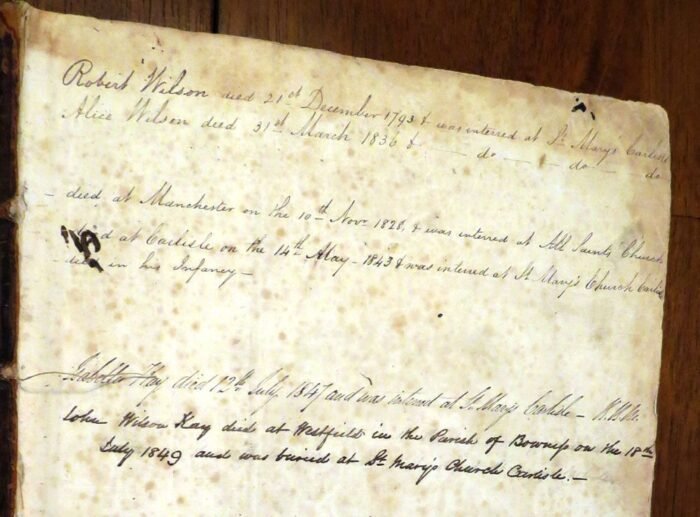 Robert Wilson died 21st December 1793 & was interred at St Mary's Carlisle
Alice Wilson died 31st March 1836 & — do — do — do
— died at Manchester on the 10th Novr 1828, & was interred at All Saints Church
— died at Carlisle on the 14th May - 1843 & was interred at St Mary's Church Carlisle
died in his Infancy —
Isabella Kay died 12th July, 1847 and was interred at St Mary's Carlisle —
John Wilson Kay died at Westfield in the Parish of Bowness on the 18th
July 1849 and was buried at St Mary's Church Carlisle. —